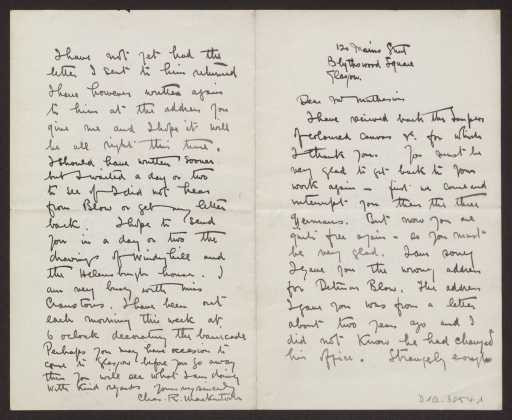 120 Mains Street
Blythswood Square
Glasgow.
Dear Mr Muthesius
I have received back the samples
of coloured canvas &c. for which
I thank you. You must be
very glad to get back to your
work again — first we come and
interrupt you then the three
Germans. But now you are
quite free again — so you must
be very glad. I am sorry
I gave you the wrong address
for Detmar Blow. The address
I gave you was from a letter
about two years ago and I
did not know he had changed
his office. Strangely enough
I have not yet had the
letter I sent to him returned
I have however written again
to him at the address you
give me and I hope it will
be all right this time.
I should have written sooner
but I waited a day or two
to see if I did not hear
from Blow or get my letter
back. I hope to send
you in a day or two the
drawings of Windyhill and
the Helensburgh house. I
am very busy with Miss
Cranstons. I have been out
each morning this week at
6 oclock decorating the barricade
Perhaps you may have occasion to
come to Glasgow before you go away
then you will see what I am doing
With kind regards Yours very sincerely
Chas. R. Mackintosh